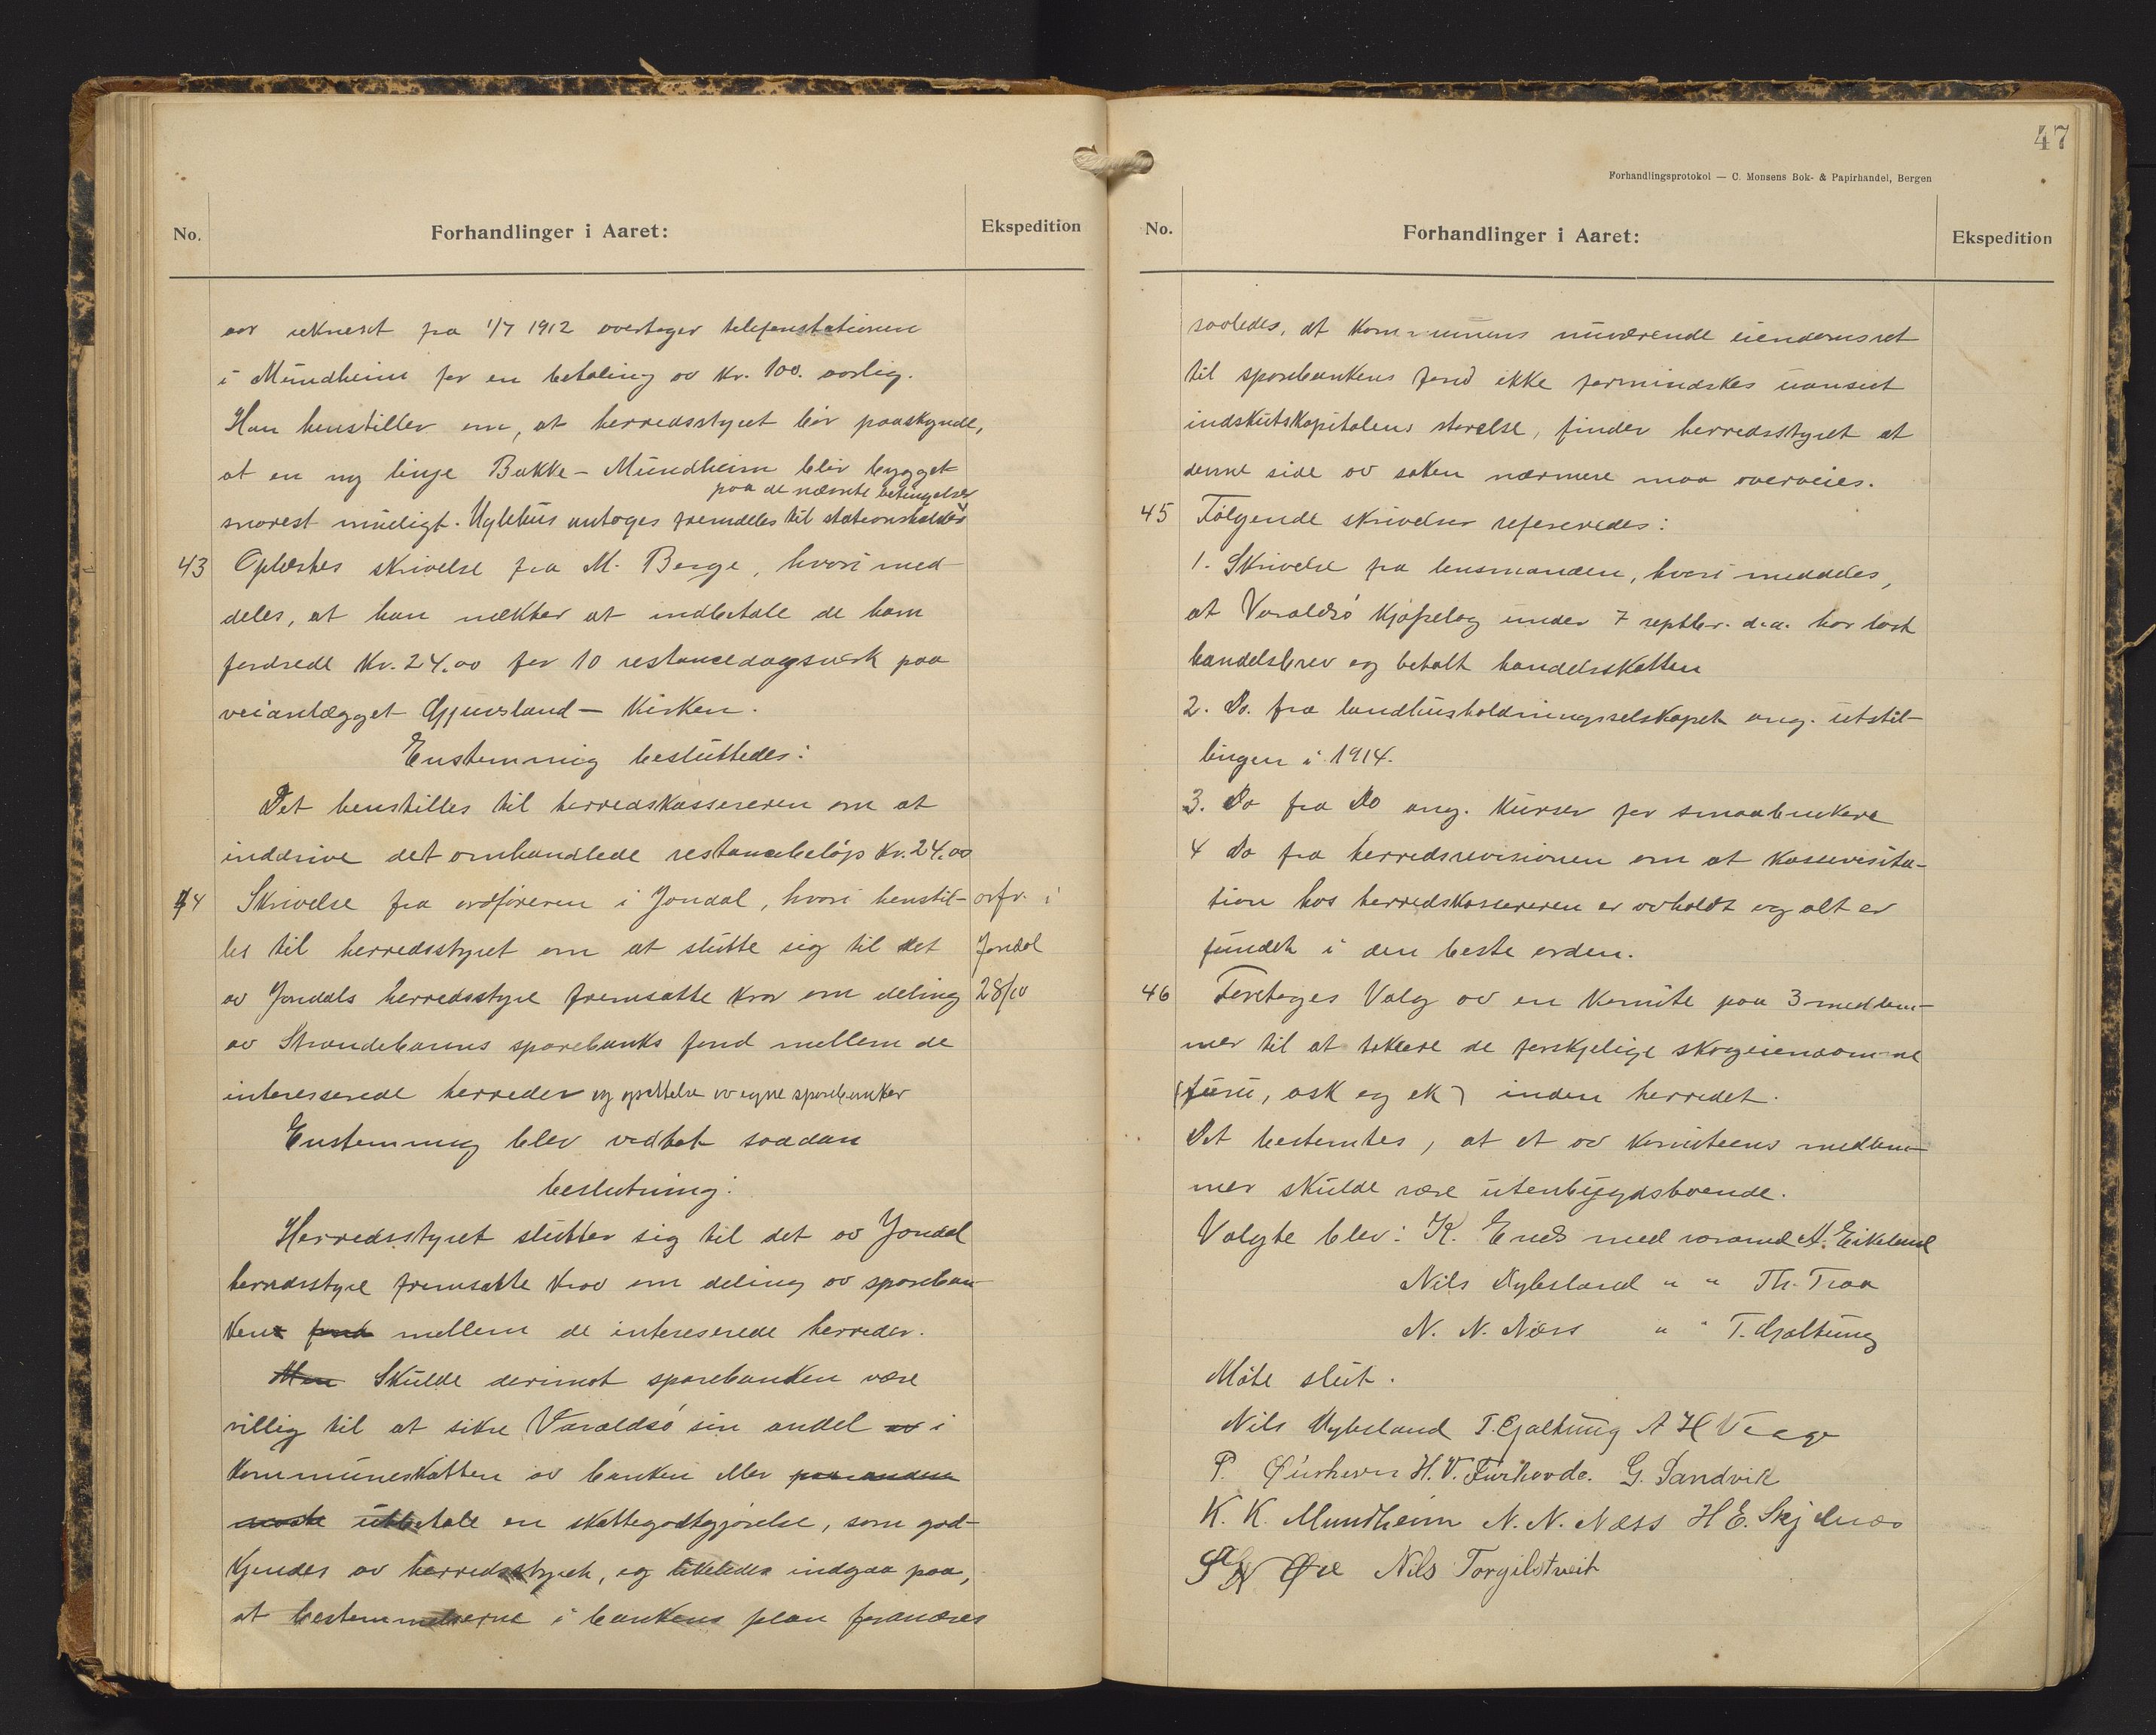 No.
Forhandlinger i Aaret:
Ekspedition
aar reknest fra 1/7 1912 overtager telefonstationen
i Mundheim for en betaling av Kr. 100. aarlig.
Han henstiller om, at herredsstyret bør paaskynde,
at en ny linje Bakke - Mundheim blir bygget
paa de nævnte betingelser
snarest muligt. Uglehus antoges fremdeles til stationsholder
43 Oplæstes skrivelse fra M. Berge, hvori med-
deles, at han nekter at indbetale de ham
fordrede Kr. 24.00 for 10 restancedagsverk paa
veianlægget Gjuvsland - Kirken.
Enstemmig besluttedes:
Det henstilles til herredskassereren om at
inddrive det omhandlede restancebeløp Kr. 24.00
44 Skrivelse fra ordføreren i Jondal, hvori henstil-
les til herredsstyret om at slutte sig til det
av Jondals herredsstyre fremsatte krav om deling
av Strandebarms sparebanks fond mellem de
interesserede herreder og oprettelse av egne sparebanker
ordf. i
Jondal
28/10
Enstemmig blev vedtat saadan
beslutning:
Herredsstyret slutter sig til det av Jondal
herredsstyre fremsatte krav om deling av spareban-
ken fond mellem de intereserede herreder.
Men Skulde derimot sparebanken være
villig til at sikre Varaldsø sin andel av i
Kommuneskatten av banken eller paa anden
maate utbetale en skattegodtgjørelse, som god-
kjendes av herredsstyret, og likeledes indgaa paa,
at bestemmelserne i bankens plan forandres
47
Forhandlingsprotokol — C. Monsens Bok- & Papirhandel, Bergen
No.
Forhandlinger i Aaret:
Ekspedition
saaledes, at Kommunens nuværende eiendomsret
til sparebankens fond ikke formindskes uanset
indskutskapitalens størelse, finder herredsstyret at
denne side av saken nærmere maa overveies.
45 Følgende skrivelser refereredes:
1. Skrivelse fra lensmanden, hvori meddeles,
at Varaldsø Kjøpelag under 7 septbr. d.a. har løst
handelsbrev og betalt handelsskatten
2. Do. fra landhusholdningsselskapet ang. utstil-
lingen i 1914.
3. Do fra Do ang. Kurser for smaabrukere
4 Do fra herredsrevisionen om at kassevisita-
tion hos herredskassereren er avholdt og alt er
fundet i den beste orden.
46 Foretoges Valg av en Komite paa 3 medlem-
mer til at taksere de forskjelige skogeiendomme
(furu, ask og ek) inden herredet.
Det bestemtes, at et av Komiteens medlem-
mer skulde være utenbygdsboende.
Valgte blev: K. Enes med varamd A. Eikeland
Nils Dybsland " " Th. Traa
N. N. Næss " " T. Gjaltung
Møte slut.
Nils Dybsland T. Gjaltung A H Vaage
P. Øurheim H. V. Furhovde. G. Sandvik
K. K. Mundheim N. N. Næss H E. Skjelnæs
Øre Nils Torgilstveit